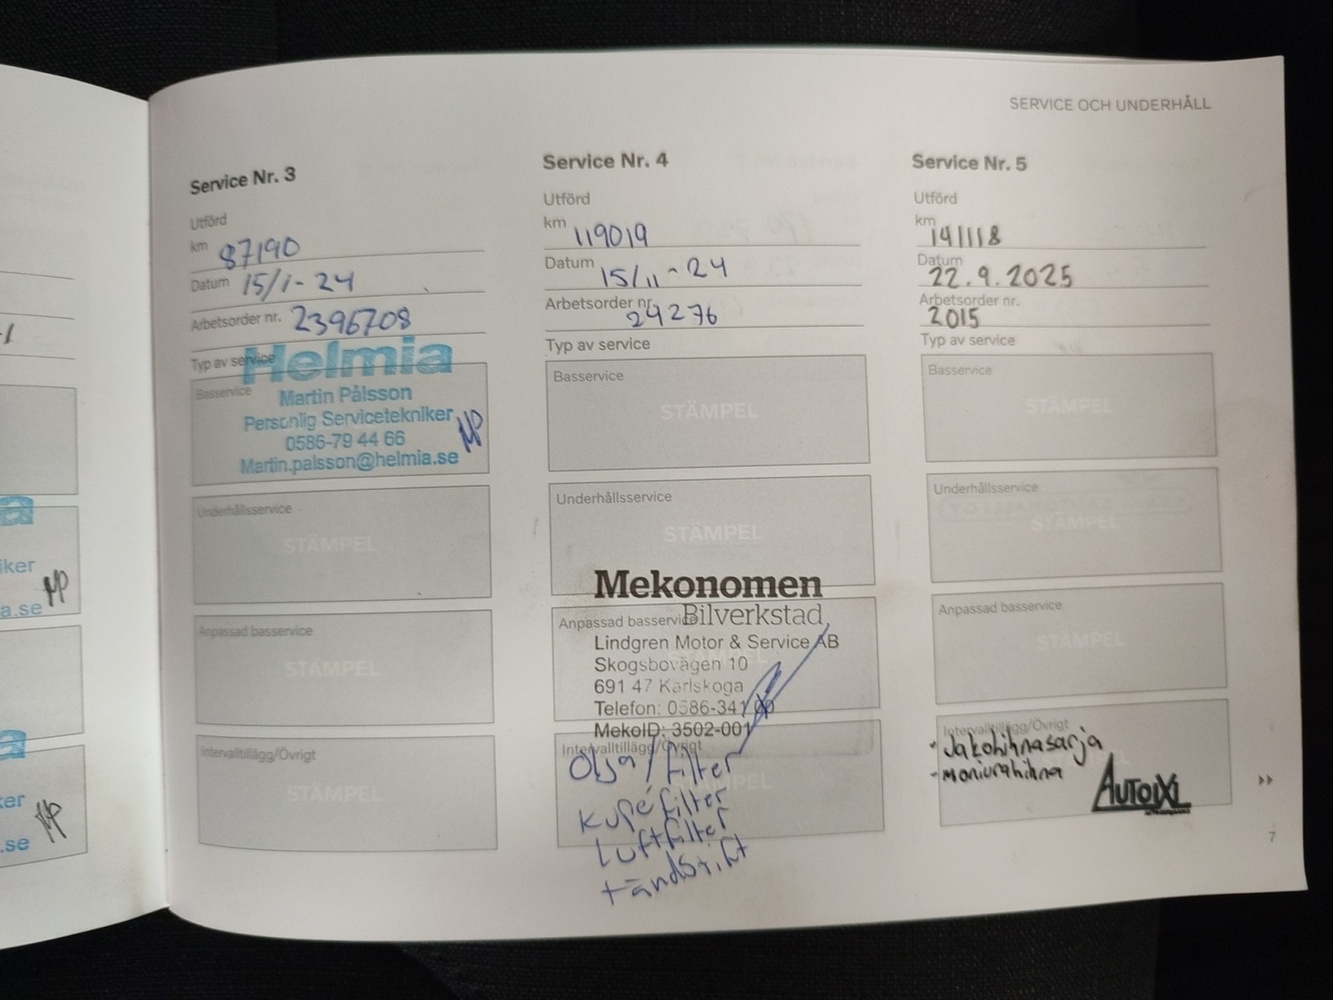 SERVICE OCH UNDERHÅLL
Service Nr. 3
Utförd
km 87190
Datum 15/1-24
Arbetsorder nr. 2396708
Typ av service
Helmia
Basservice
Martin Pålsson
Personlig Servicetekniker
0586-79 44 66
Martin.palsson@helmia.se
MP
Underhållsservice
STÄMPEL
Anpassad basservice
STÄMPEL
Intervalltillägg/Övrigt
STÄMPEL
Service Nr. 4
Utförd
km 119019
Datum 15/11-24
Arbetsorder nr. 24276
Typ av service
Basservice
STÄMPEL
Underhållsservice
STÄMPEL
Mekonomen
Bilverkstad
Anpassad basservice
Lindgren Motor & Service AB
Skogsbovägen 10
691 47 Karlskoga
Telefon: 0586-341
MekoID: 3502-001
Intervalltillägg/Övrigt
Olja/filter
Kupéfilter
Luftfilter
tändstift
Service Nr. 5
Utförd
km 141118
Datum 22.9.2025
Arbetsorder nr. 2015
Typ av service
Basservice
STÄMPEL
Underhållsservice
STÄMPEL
Anpassad basservice
STÄMPEL
Intervalltillägg/Övrigt
- Jakohihnasarja
- moniurahihna
AUTOIXL
7
iker
a.se
MP
ker
.se
MP